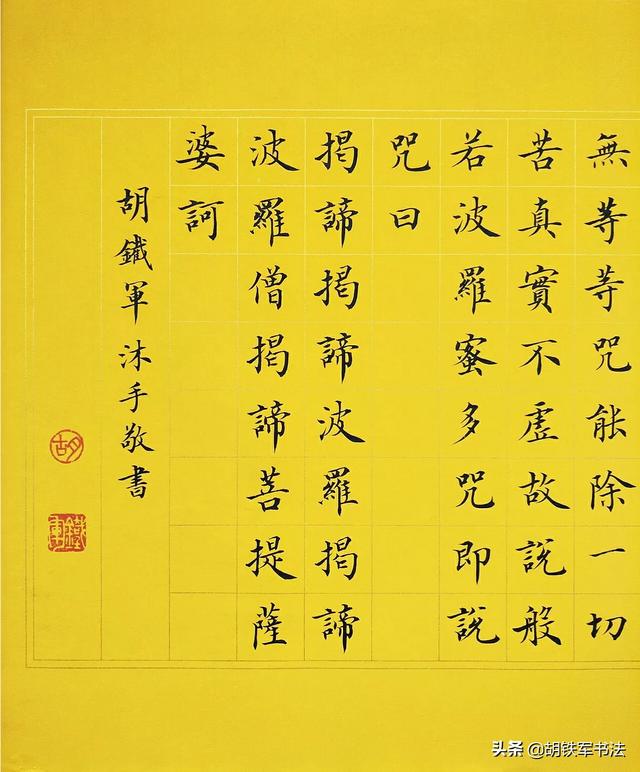 無等等咒能除一切
苦真實不虛故說般
若波羅蜜多咒即說
咒曰
揭諦揭諦波羅揭諦
波羅僧揭諦菩提薩
婆訶
胡鐵軍沐手敬書
胡
鐵軍
头条 @胡铁军书法